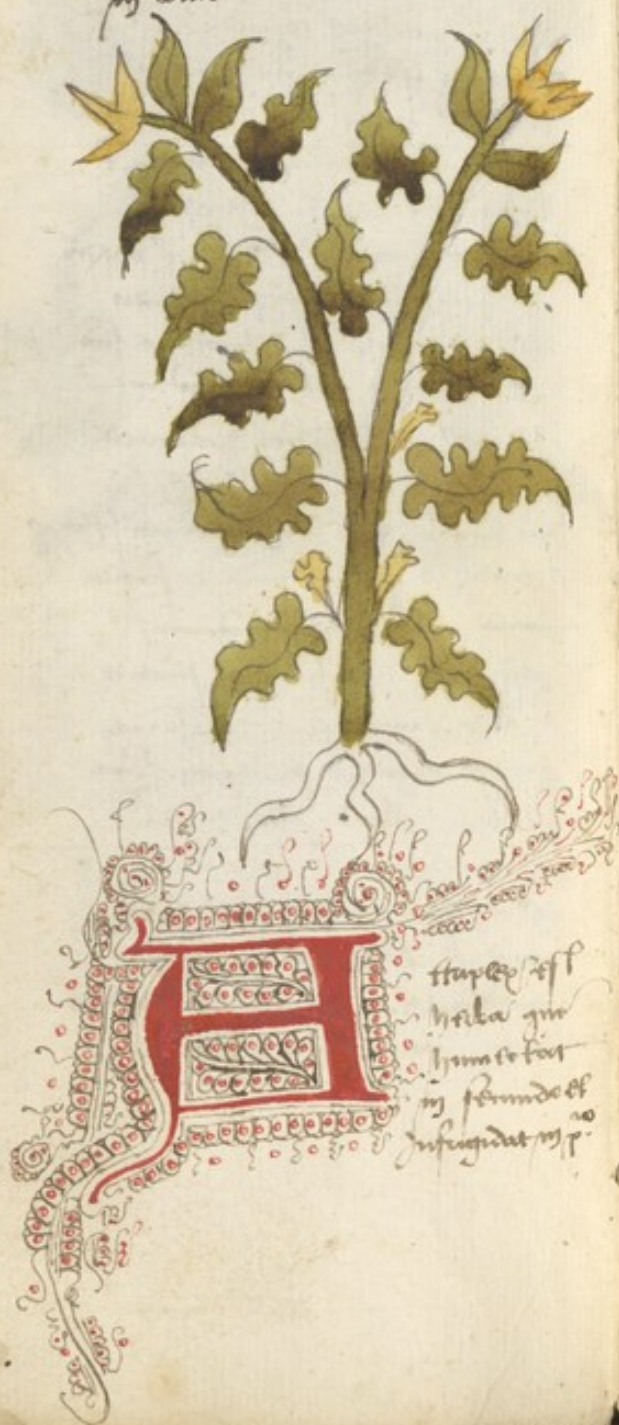 A
ttriplex est
herba que
humectat
in secundo et
infrigidat in p°